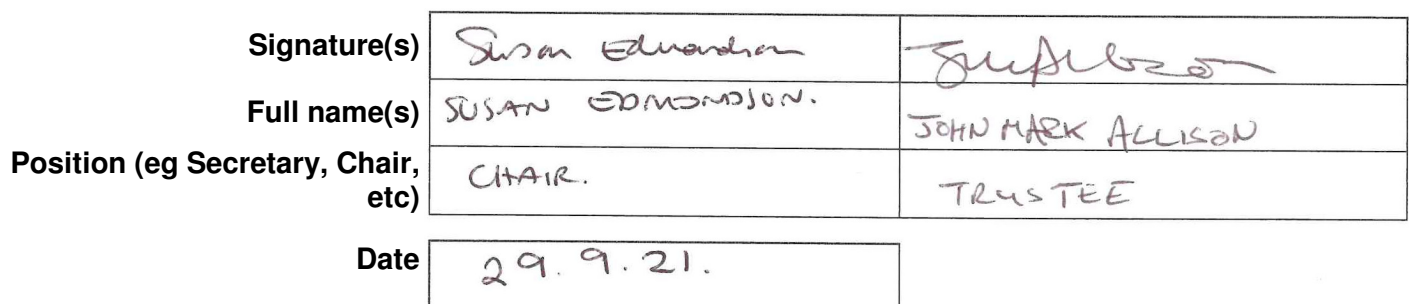 Signature(s) Susan Edmondson
Full name(s) SUSAN EDMONDSON. JOHN MARK ALLISON
Position (eg Secretary, Chair, etc) CHAIR. TRUSTEE
Date 29.9.21.